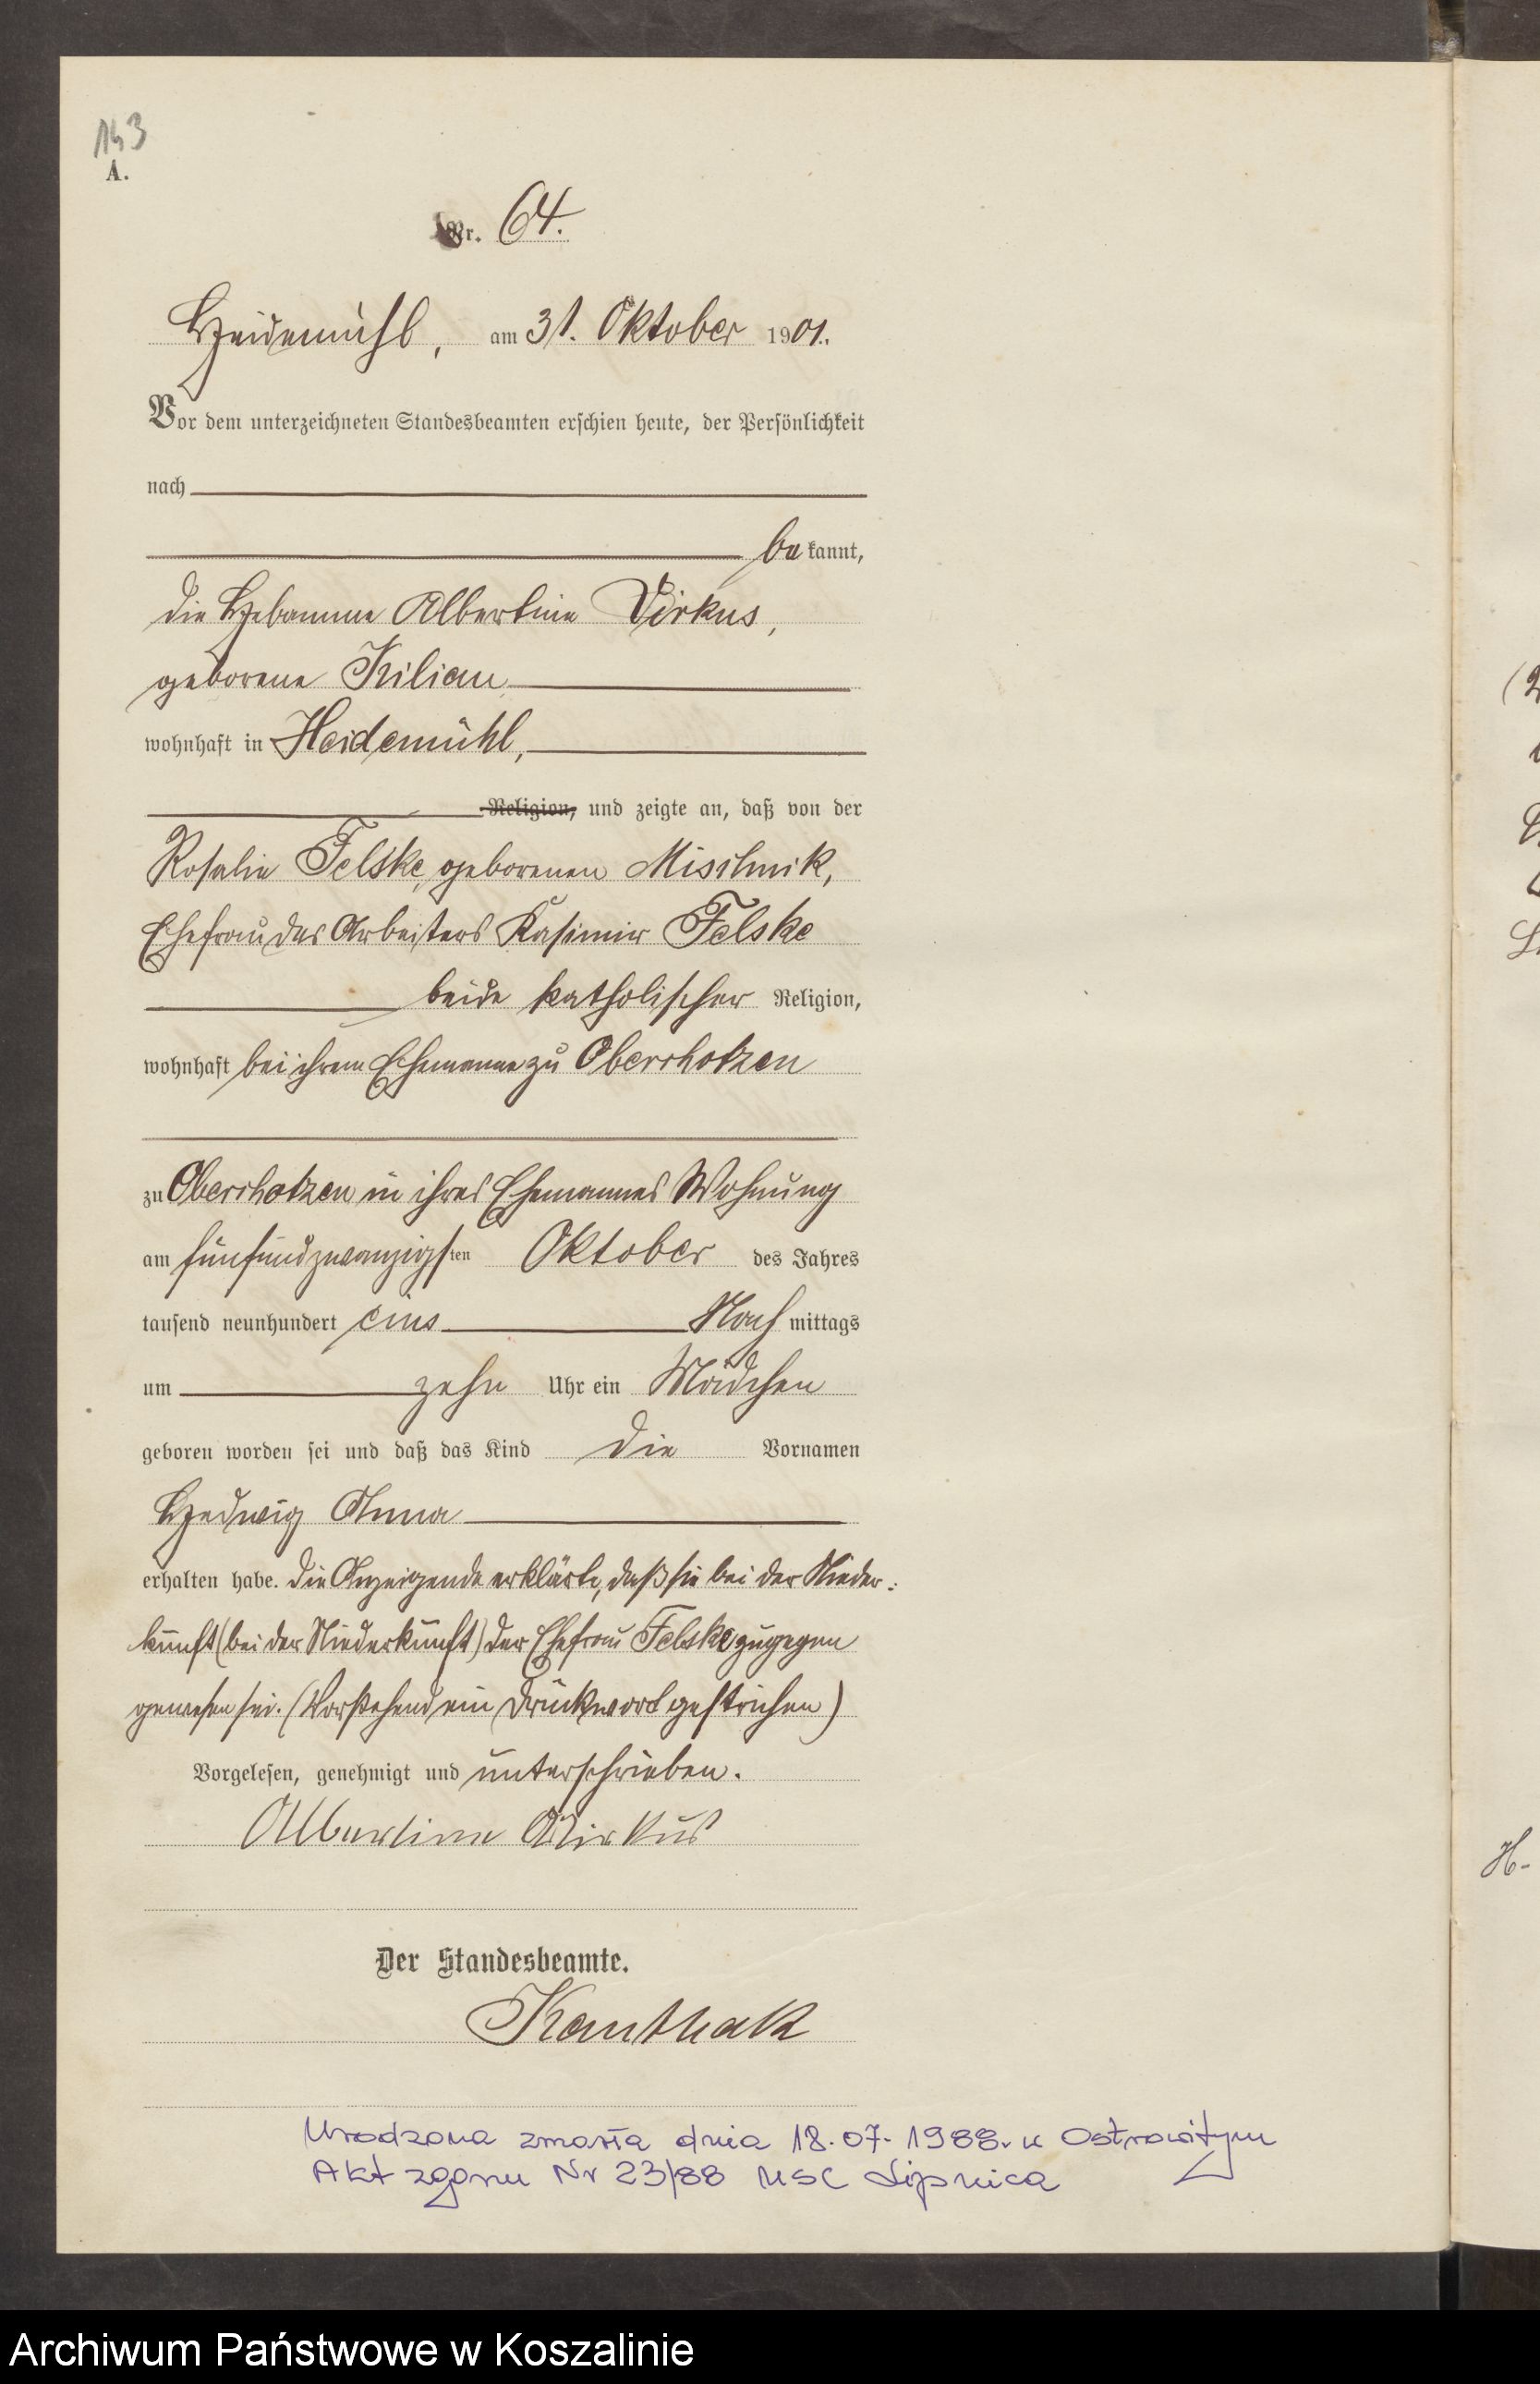 143
A.
Nr. 64.
Heidemühl, am 31. Oktober 1901.
Vor dem unterzeichneten Standesbeamten erschien heute, der Persönlichkeit
nach
bekannt,
die Hebamme Albertine Virkus,
geborene Kilian
wohnhaft in Heidemühl,
Religion, und zeigte an, daß von der
Rosalie Felske, geborenen Misilnik,
Ehefrau des Arbeiters Kasimir Felske
beide katholischer Religion,
wohnhaft bei ihrem Ehemanne zu Oberrhotzen
zu Oberrhotzen in ihres Ehemannes Wohnung
am fünfundzwanzigsten Oktober des Jahres
tausend neunhundert eins Nachmittags
um zehn Uhr ein Mädchen
geboren worden sei und daß das Kind die Vornamen
Hedwig Anna
erhalten habe. Die Anzeigende erklärte, daß sie bei der Nieder-
kunft (bei der Niederkunft) der Ehefrau Felske zugegen
gewesen sei. (Vorstehend ein Druckwort gestrichen)
Vorgelesen, genehmigt und unterschrieben.
Albertine Wirkus
Der Standesbeamte.
Kanthak
Urodzona zmarła dnia 18.07.1988. w Ostrowitym
Akt zgonu Nr 23/88 USC Lipnica
H-
Archiwum Państwowe w Koszalinie